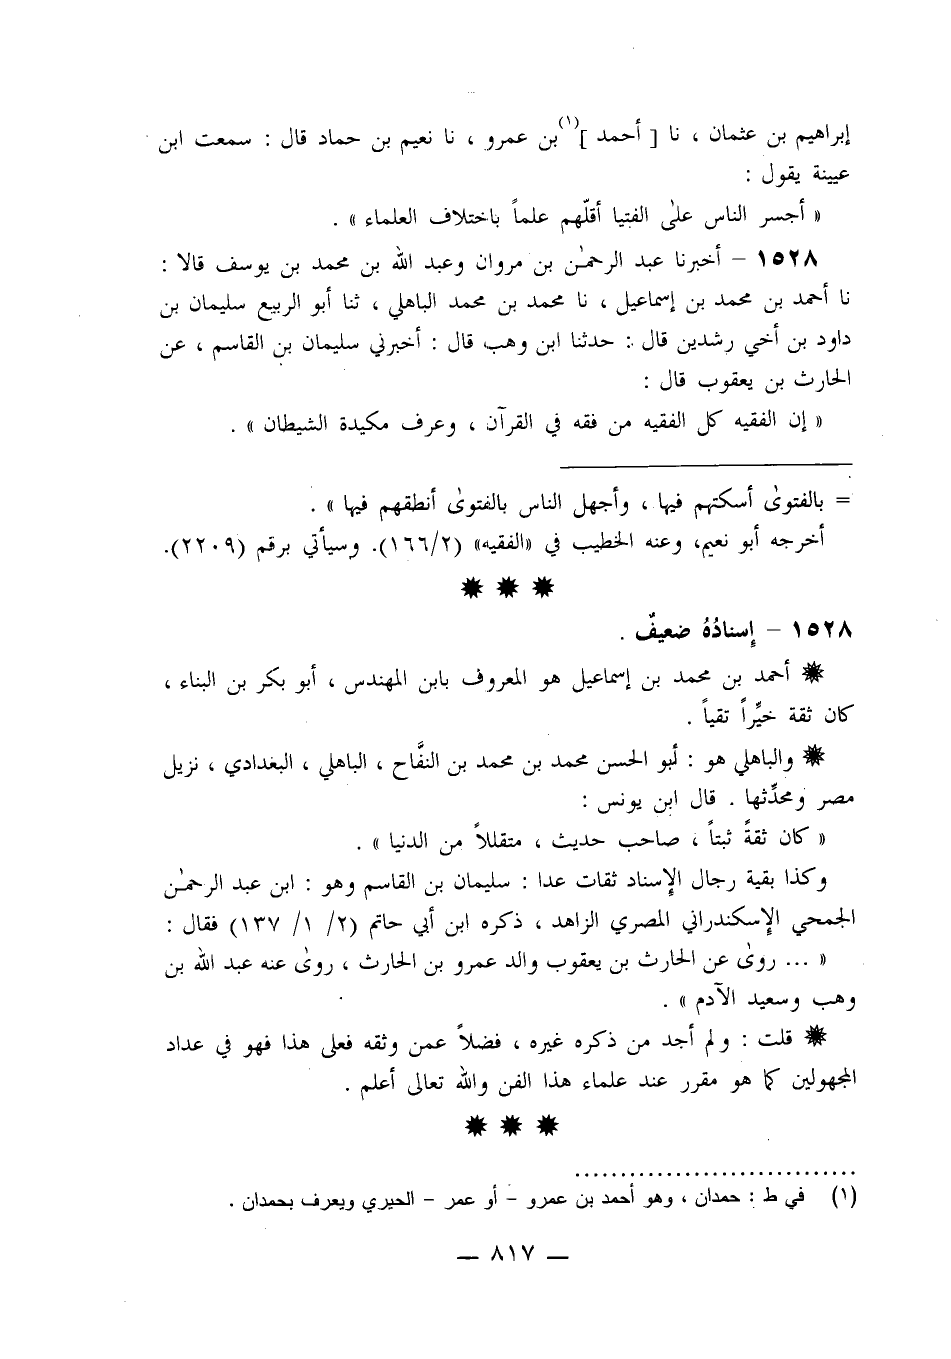 إبراهيم بن عثمان ، نا [ أحمد ](١) بن عمرو ، نا نعيم بن حماد قال : سمعت ابن
عيينة يقول :
« أجسر الناس على الفتيا أقلّهم علماً باختلاف العلماء » .
١٥٢٨ – أخبرنا عبد الرحمٰن بن مروان وعبد الله بن محمد بن يوسف قالا :
نا أحمد بن محمد بن إسماعيل ، نا محمد بن محمد الباهلي ، ثنا أبو الربيع سليمان بن
داود بن أخي رشدين قال : حدثنا ابن وهب قال : أخبرني سليمان بن القاسم ، عن
الحارث بن يعقوب قال :
« إن الفقيه كل الفقيه من فقه في القرآن ، وعرف مكيدة الشيطان » .
= بالفتوىٰ أسكتهم فيها ، وأجهل الناس بالفتوىٰ أنطقهم فيها » .
أخرجه أبو نعيم، وعنه الخطيب في «الفقيه» (١٦٦/٢). وسيأتي برقم (٢٢٠٩).
١٥٢٨ – إسنادُهُ ضعيفٌ .
أحمد بن محمد بن إسماعيل هو المعروف بابن المهندس ، أبو بكر بن البناء ،
كان ثقة خيِّراً تقياً .
والباهلي هو : أبو الحسن محمد بن محمد بن النفَّاح ، الباهلي ، البغدادي ، نزيل
مصر ومحدِّثها . قال ابن يونس :
« كان ثقةً ثبتاً ، صاحب حديث ، متقللاً من الدنيا » .
وكذا بقية رجال الإسناد ثقات عدا : سليمان بن القاسم وهو : ابن عبد الرحمٰن
الجمحي الإسكندراني المصري الزاهد ، ذكره ابن أبي حاتم (٢/ ١/ ١٣٧) فقال :
« ... روىٰ عن الحارث بن يعقوب والد عمرو بن الحارث ، روىٰ عنه عبد الله بن
وهب وسعيد الآدم » .
قلت : ولم أجد من ذكره غيره ، فضلاً عمن وثقه فعلى هذا فهو في عداد
المجهولين كما هو مقرر عند علماء هذا الفن والله تعالى أعلم .
(١) في ط : حمدان ، وهو أحمد بن عمرو – أو عمر – الحيري ويعرف بحمدان .
— ٨١٧ —